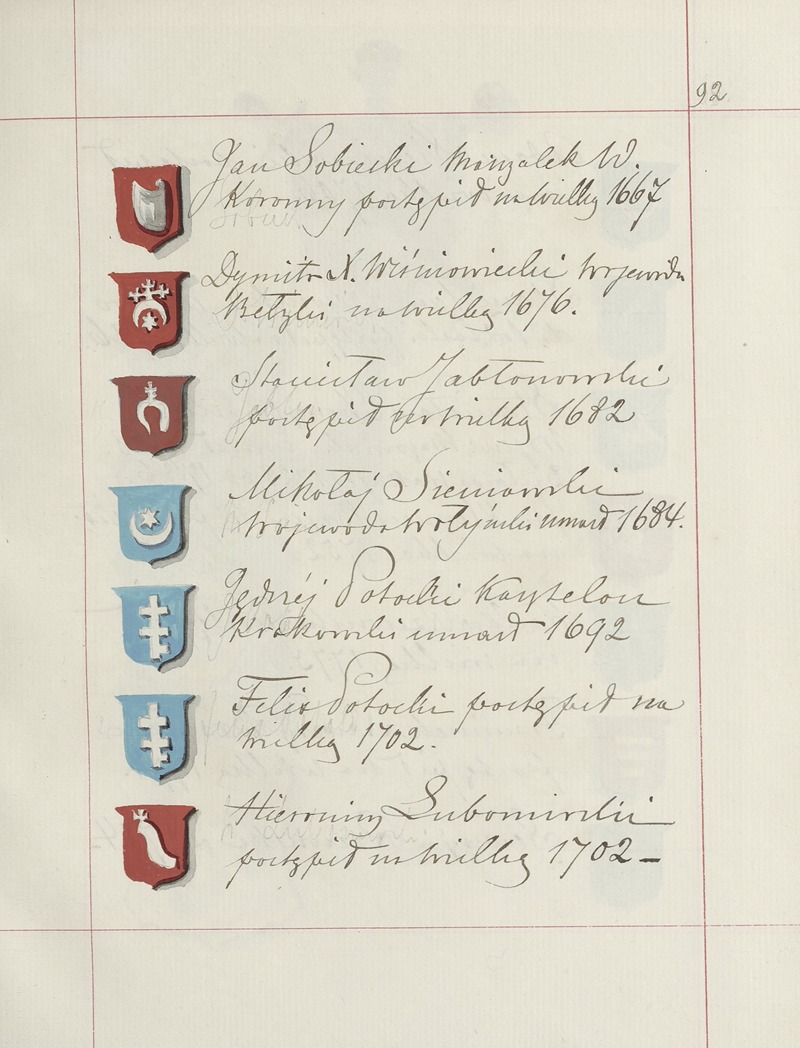 92
Jan Sobieski Marszalek W.
Koronny postąpił na wielką 1667
Dymitr X. Wiśniowiecki Wojewoda
Bełzki na wielką 1676.
Stanisław Jabłonowski
postąpił na wielką 1682
Mikołaj Sieniawski
Wojewoda wołyński umarł 1684.
Jędrzéj Potocki Kasztelan
Krakowski umarł 1692
Felix Potocki postąpił na
wielką 1702.
Hieronim Lubomirski
postąpił na wielką 1702 –